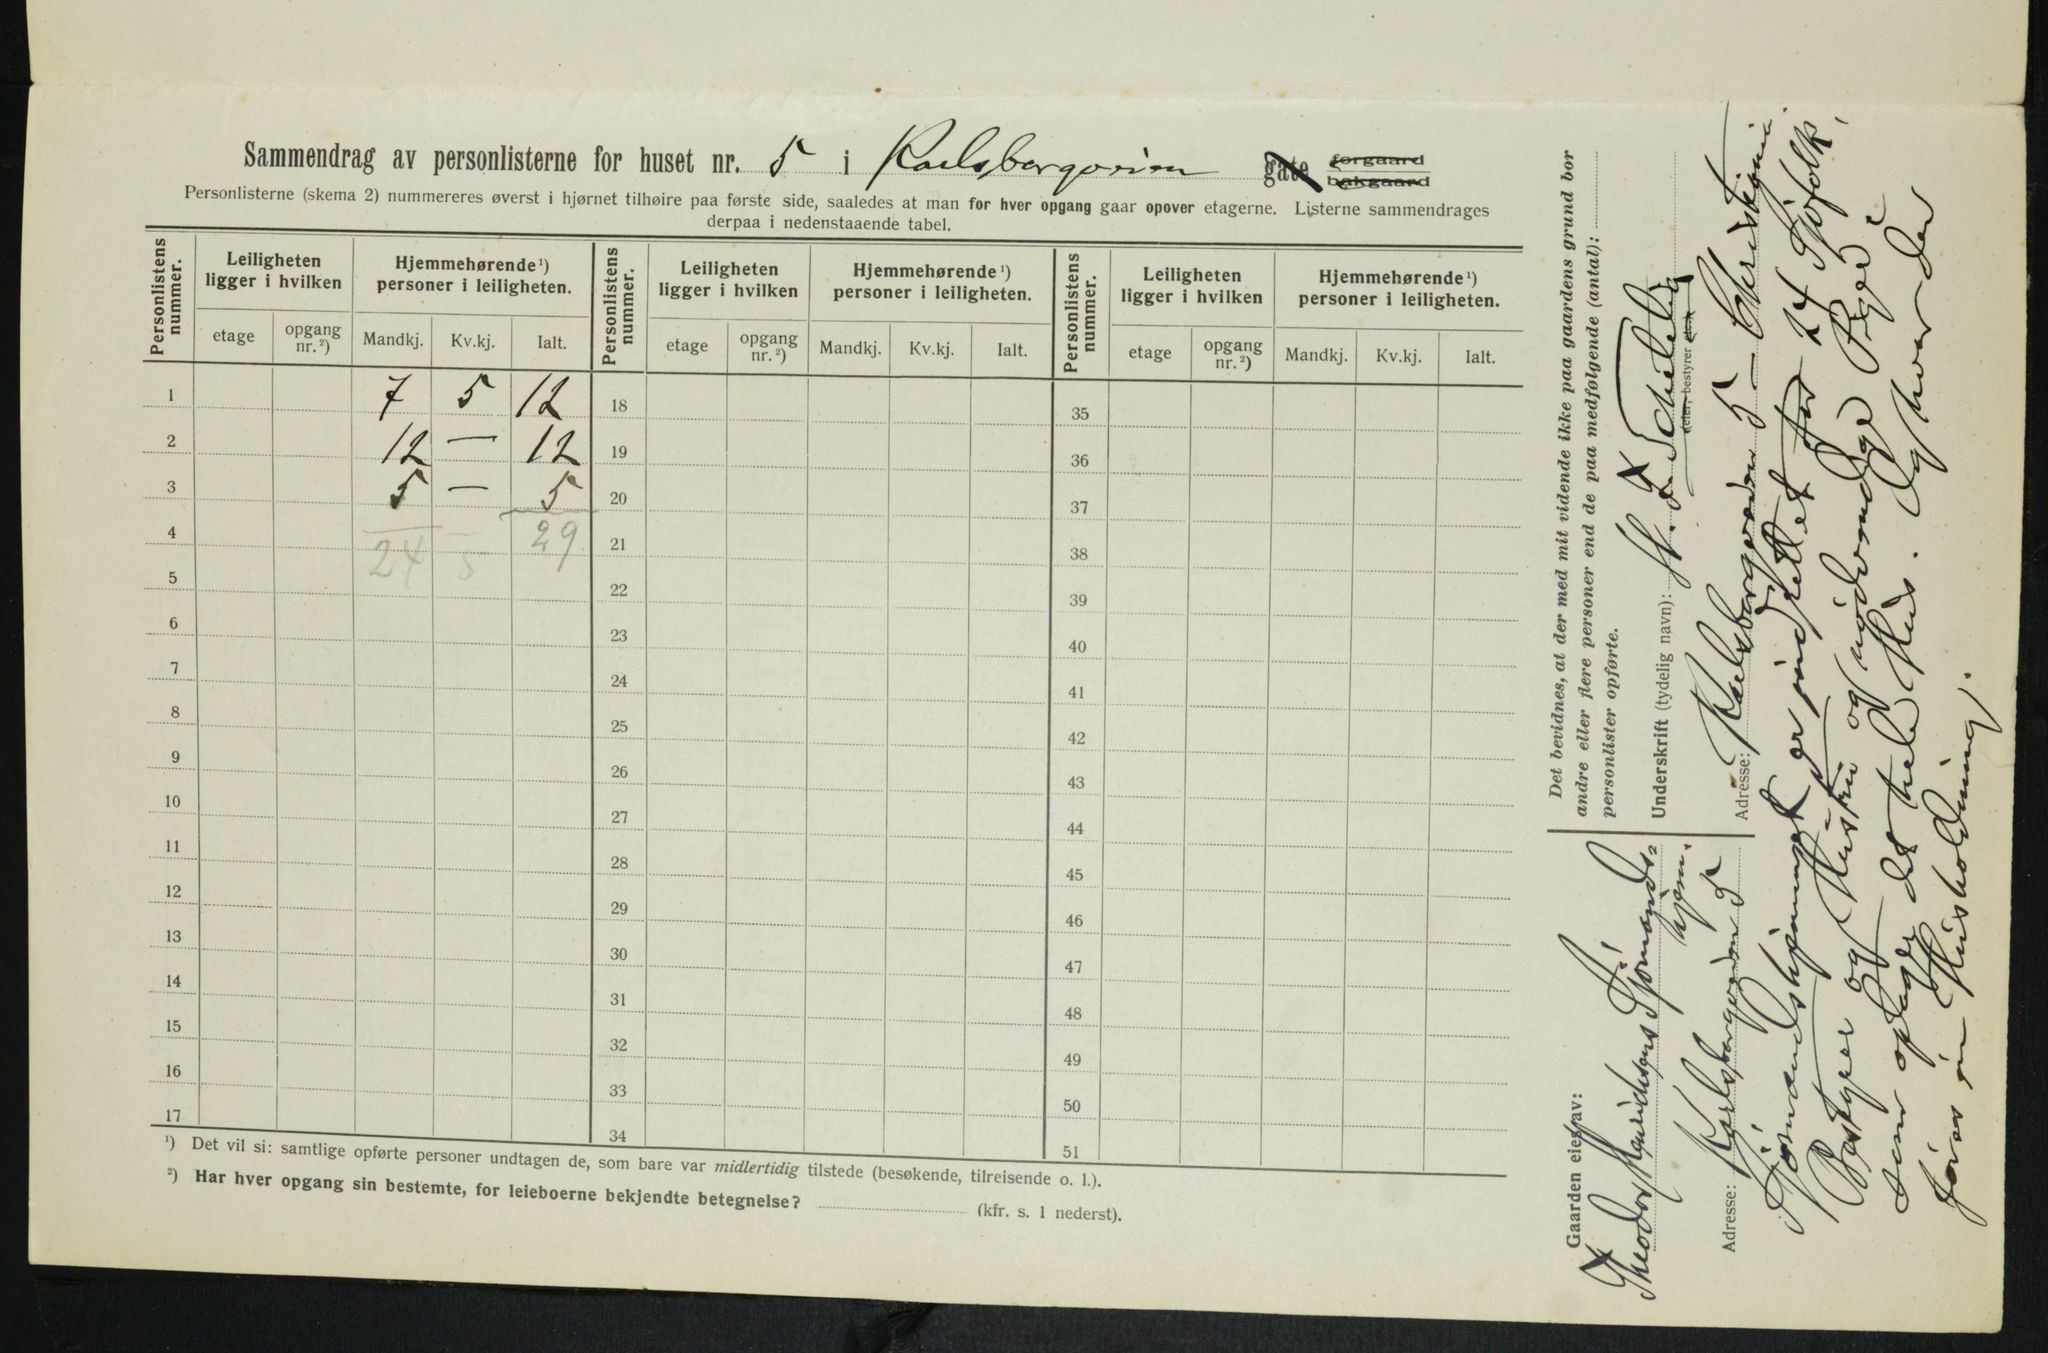 Sammendrag av personlisterne for huset nr. 5 i Karlsborgveien gate forgaard bakgaard
Personlisterne (skema 2) nummereres øverst i hjørnet tilhøire paa første side, saaledes at man for hver opgang gaar opover etagerne. Listerne sammendrages
derpaa i nedenstaaende tabel.
Personlistens nummer. Leiligheten ligger i hvilken Hjemmehørende¹) personer i leiligheten. Personlistens nummer. Leiligheten ligger i hvilken Hjemmehørende¹) personer i leiligheten. Personlistens nummer. Leiligheten ligger i hvilken Hjemmehørende¹) personer i leiligheten.
etage opgang nr.²) Mandkj. Kv.kj. Ialt. etage opgang nr.²) Mandkj. Kv.kj. Ialt. etage opgang nr.²) Mandkj. Kv.kj. Ialt.
1 7 5 12 18 35
2 12 — 12 19 36
3 5 — 5 20 37
4 24 5 29 21 38
5 22 39
6 23 40
7 24 41
8 25 42
9 26 43
10 27 44
11 28 45
12 29 46
13 30 47
14 31 48
15 32 49
16 33 50
17 34 51
¹) Det vil si: samtlige opførte personer undtagen de, som bare var midlertidig tilstede (besøkende, tilreisende o. l.).
²) Har hver opgang sin bestemte, for leieboerne bekjendte betegnelse? (kfr. s. 1 nederst).
Det bevidnes, at der med mit vidende ikke paa gaardens grund bor
andre eller flere personer end de paa medfølgende (antal):
personlister opførte.
Underskrift (tydelig navn):
(eier, bestyrer
Adresse: Karlsborgveien 5 Christiania
Gaarden eies av:
Theodor Mauritzens Sjømands-
hjem.
Adresse: Karlsborgveien 5
Sjømandshjemmet er indrettet for 24 Sjøfolk,
Bestyrer og Hustru og nødvendige Piger
som optager det hele Hus. Og hvor der
føres en Husholdning.